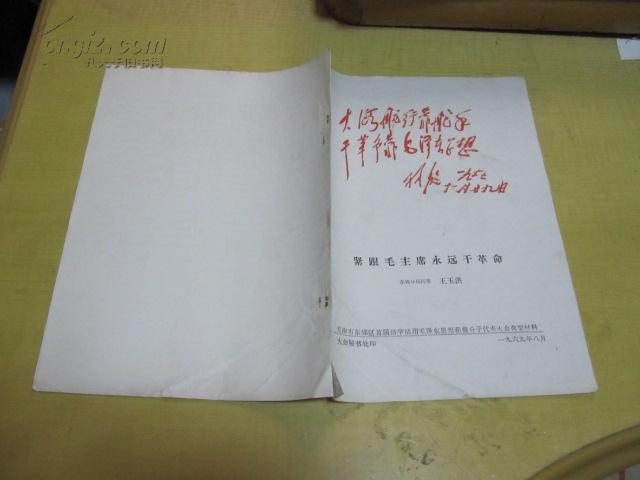 大海航行靠舵手
干革命靠毛泽东思想
林彪 一九六七
十一月廿九日
紧跟毛主席永远干革命
王玉洪
东郊区首届活学活用毛泽东思想积极分子代表大会典型材料
大会秘书处印 一九六九年八月